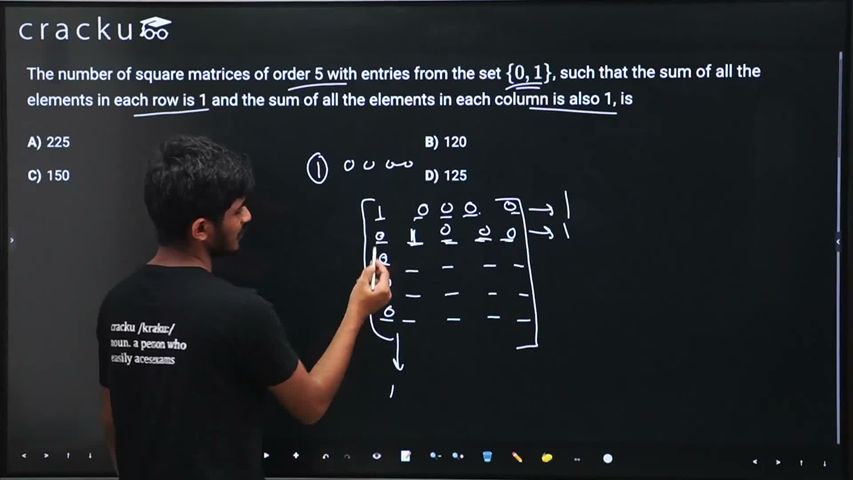 cracku
The number of square matrices of order 5 with entries from the set {0, 1}, such that the sum of all the
elements in each row is 1 and the sum of all the elements in each column is also 1, is
A) 225
B) 120
C) 150
D) 125
1 0 0 0 0
1 0 0 0 0 → 1
0 1 0 0 0 → 1
0 _ _ _ _
0 _ _ _ _
0 _ _ _ _
1
cracku /krakuː/
noun. a person who
easily acesexams